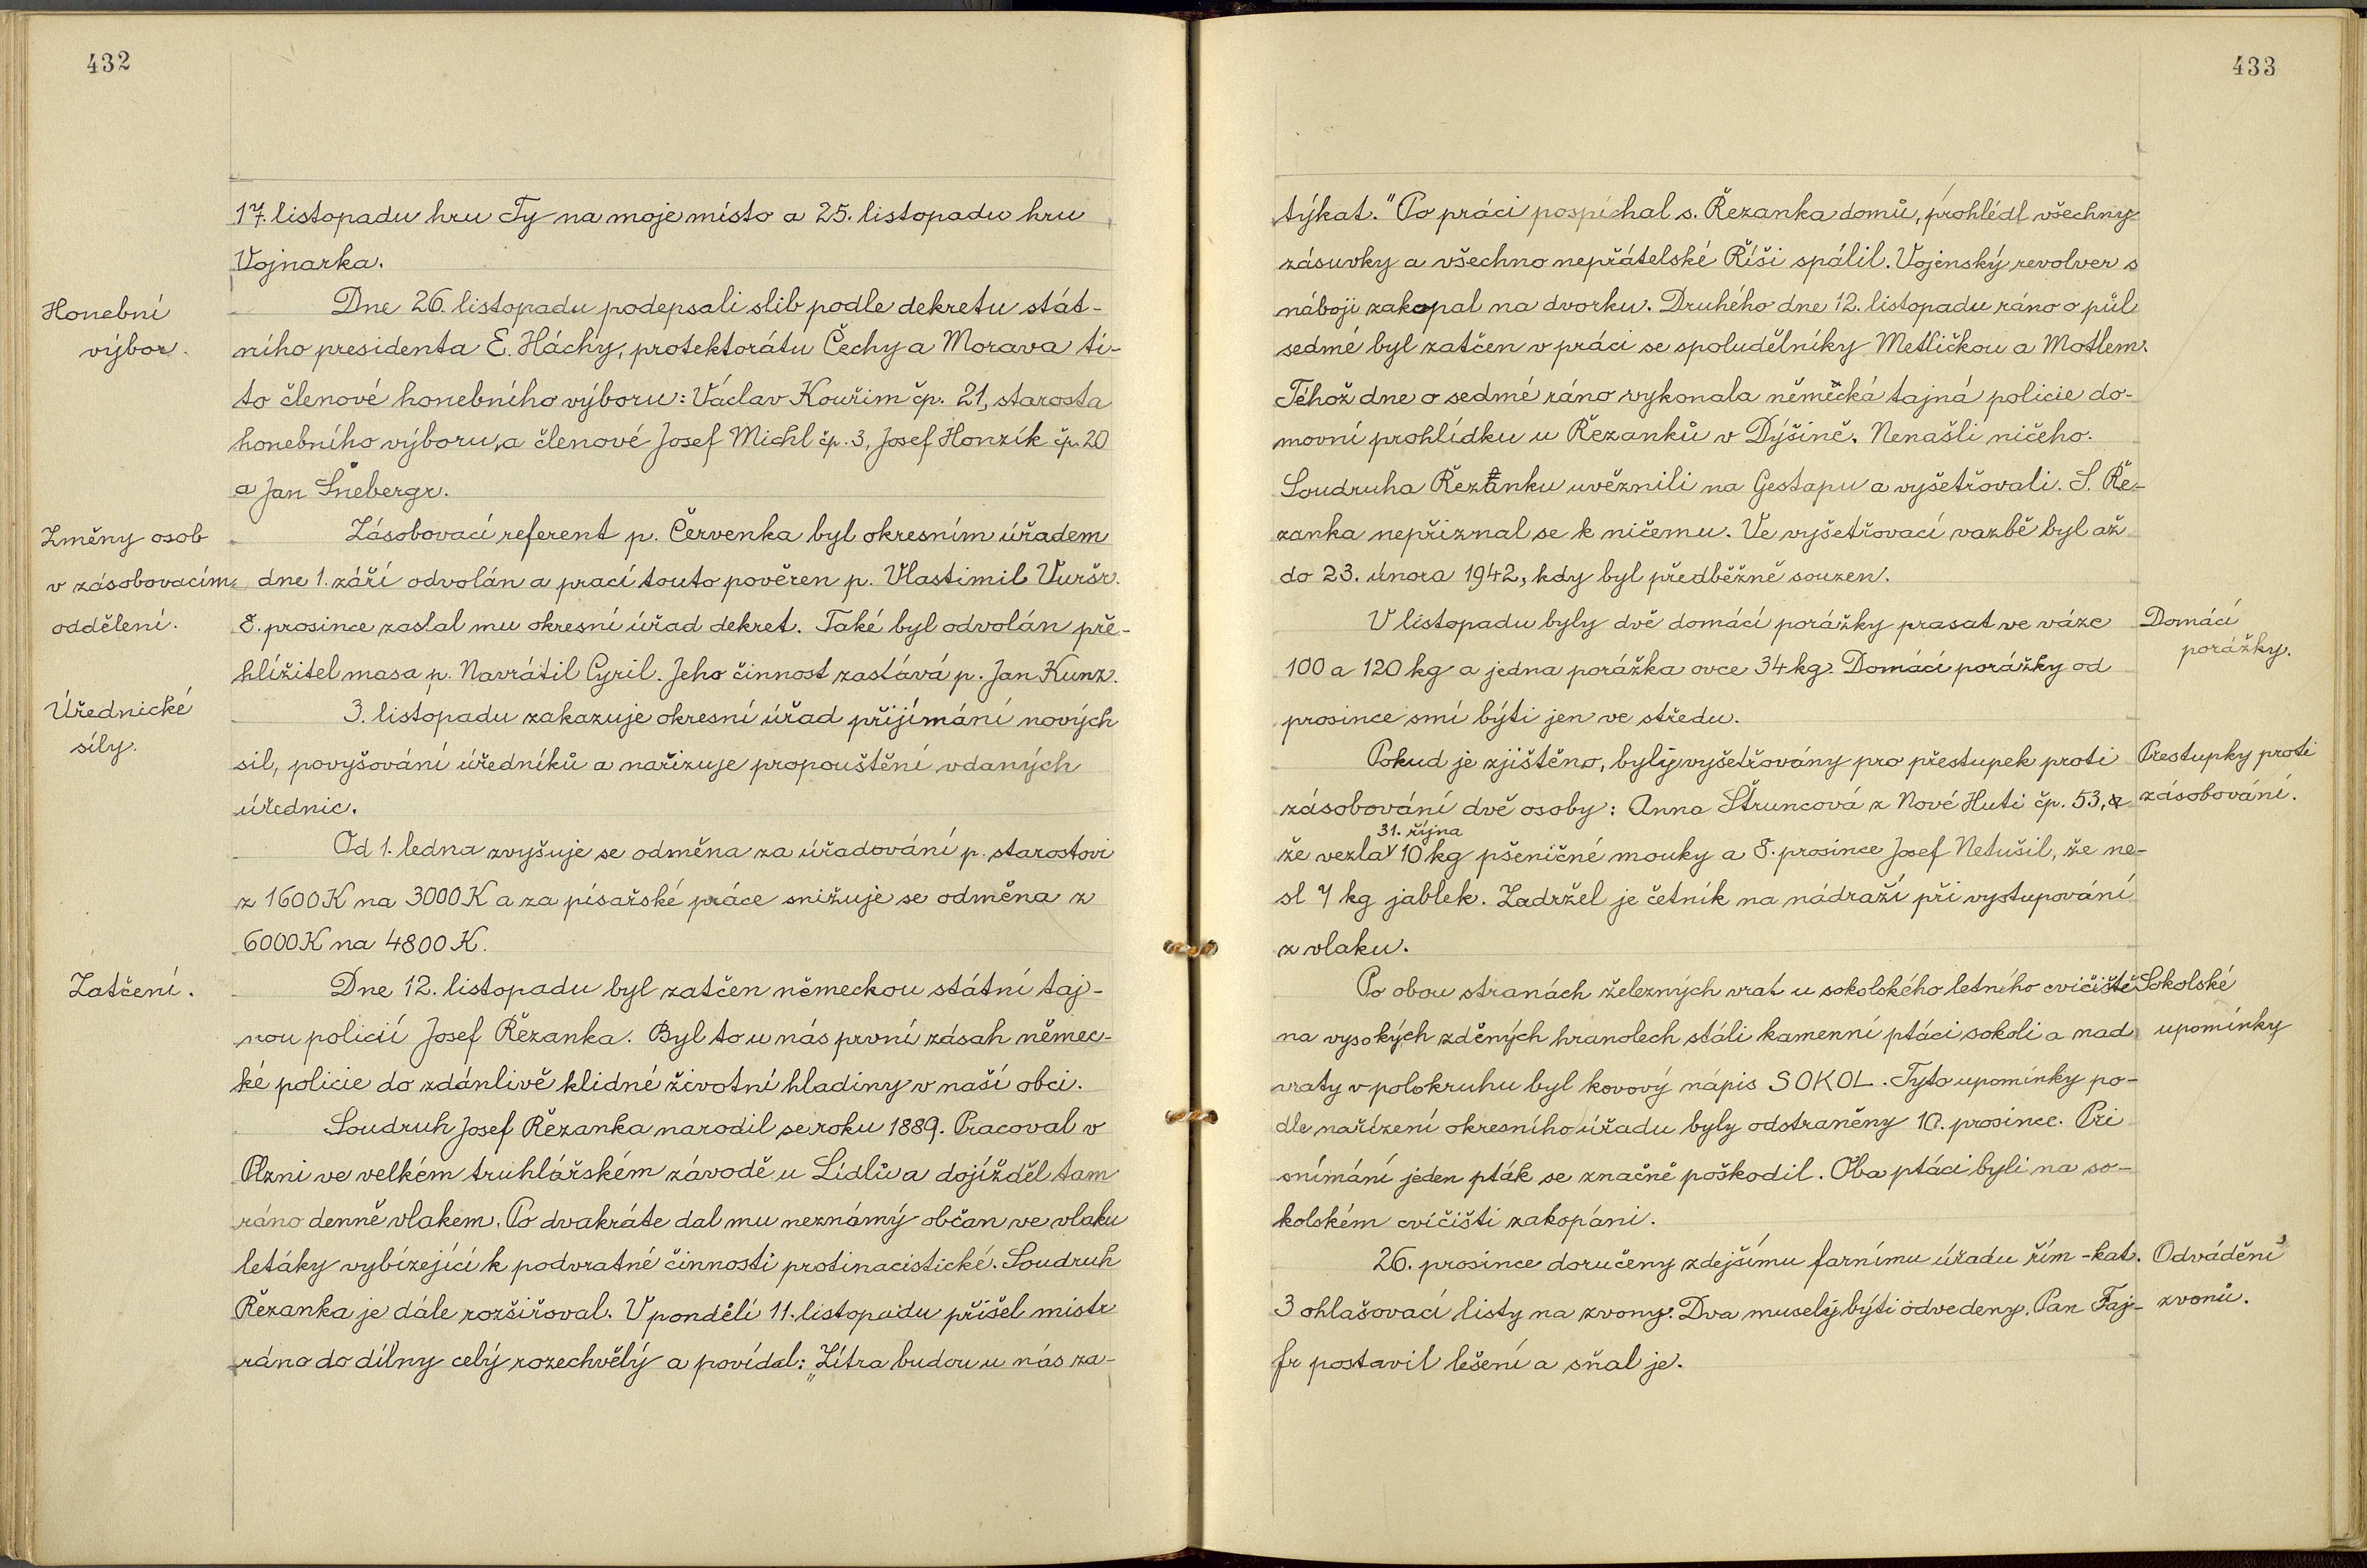 432
17. listopadu hru Ty na moje místo a 25. listopadu hru
Vojnarka.
Honební
výbor.
Dne 26. listopadu podepsali slib podle dekretu stát-
ního presidenta E. Háchy, protektorátu Čechy a Morava ti-
to členové honebního výboru: Václav Kouřim čp. 21, starosta
honebního výboru, a členové Josef Michl čp. 3, Josef Honzík čp. 20
a Jan Šnebergr.
Změny osob
v zásobovacím
oddělení.
Zásobovací referent p. Červenka byl okresním úřadem
dne 1. září odvolán a prací touto pověřen p. Vlastimil Vuršr.
8. prosince zaslal mu okresní úřad dekret. Také byl odvolán pře-
hlížitel masa p. Navrátil Cyril. Jeho činnost zastává p. Jan Kunz.
Úřednické
síly.
3. listopadu zakazuje okresní úřad přijímání nových
sil, povyšování úředníků a nařizuje propouštění vdaných
úřednic.
Od 1. ledna zvyšuje se odměna za úřadování p. starostovi
z 1600 K na 3000 K a za písařské práce snižuje se odměna z
6000 K na 4800 K.
Zatčení.
Dne 12. listopadu byl zatčen německou státní taj-
nou policií Josef Řezanka. Byl to u nás první zásah němec-
ké policie do zdánlivě klidné životní hladiny v naší obci.
Soudruh Josef Řezanka narodil se roku 1889. Pracoval v
Plzni ve velkém truhlářském závodě u Lídlů a dojížděl tam
ráno denně vlakem. Po dvakráte dal mu neznámý občan ve vlaku
letáky vybízející k podvratné činnosti protinacistické. Soudruh
Řezanka je dále rozšiřoval. V pondělí 11. listopadu přišel mistr
ráno do dílny celý rozechvělý a povídal: „Zítra budou u nás za-
433
týkat." Po práci pospíchal s. Řezanka domů, prohlédl všechny
zásuvky a všechno nepřátelské Říši spálil. Vojenský revolver s
náboji zakopal na dvorku. Druhého dne 12. listopadu ráno o půl
sedmé byl zatčen v práci se spoludělníky Metličkou a Motlem.
Téhož dne o sedmé ráno vykonala německá tajná policie do-
movní prohlídku u Řezanků v Dýšině. Nenašli ničeho.
Soudruha Řezanku uvěznili na Gestapu a vyšetřovali. S. Ře-
zanka nepřiznal se k ničemu. Ve vyšetřovací vazbě byl až
do 23. února 1942, kdy byl předběžně souzen.
V listopadu byly dvě domácí porážky prasat ve váze
100 a 120 kg a jedna porážka ovce 34 kg. Domácí porážky od
prosince smí býti jen ve středu.
Domácí
porážky.
Pokud je zjištěno, byly vyšetřovány pro přestupek proti
zásobování dvě osoby: Anna Štruncová z Nové Huti čp. 53,
31. října
že vezla 10 kg pšeničné mouky a 8. prosince Josef Netušil, že ne-
sl 7 kg jablek. Zadržel je četník na nádraží při vystupování
z vlaku.
Prestupky proti
zásobování.
Po obou stranách železných vrat u sokolského letního cvičiště
na vysokých zděných hranolech stáli kamenní ptáci sokoli a nad
vraty v polokruhu byl kovový nápis SOKOL. Tyto upomínky po-
dle nařízení okresního úřadu byly odstraněny 10. prosince. Při
snímání jeden pták se značně poškodil. Oba ptáci byli na so-
kolském cvičišti zakopáni.
Sokolské
upomínky
26. prosince doručeny zdejšímu farnímu úřadu řím-kat.
3 ohlašovací listy na zvony. Dva musely býti odvedeny. Pan Faj-
fr postavil lešení a sňal je.
Odvádění
zvonů.